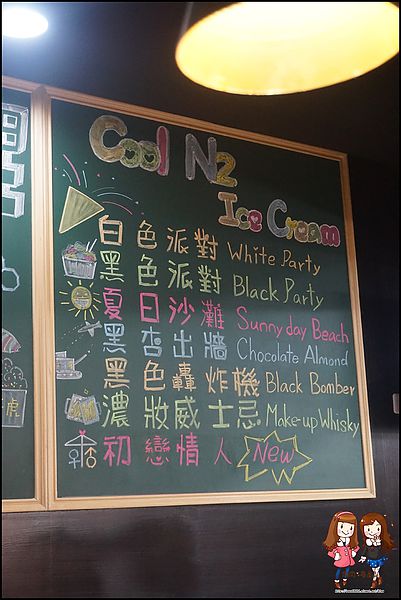 Cool N2
Ice Cream
白色派對 White Party
黑色派對 Black Party
夏日沙灘 Sunny day Beach
黑杏出牆 Chocolate Almond
黑色轟炸機 Black Bomber
濃妝威士忌 Make-up Whisky
初戀情人 New